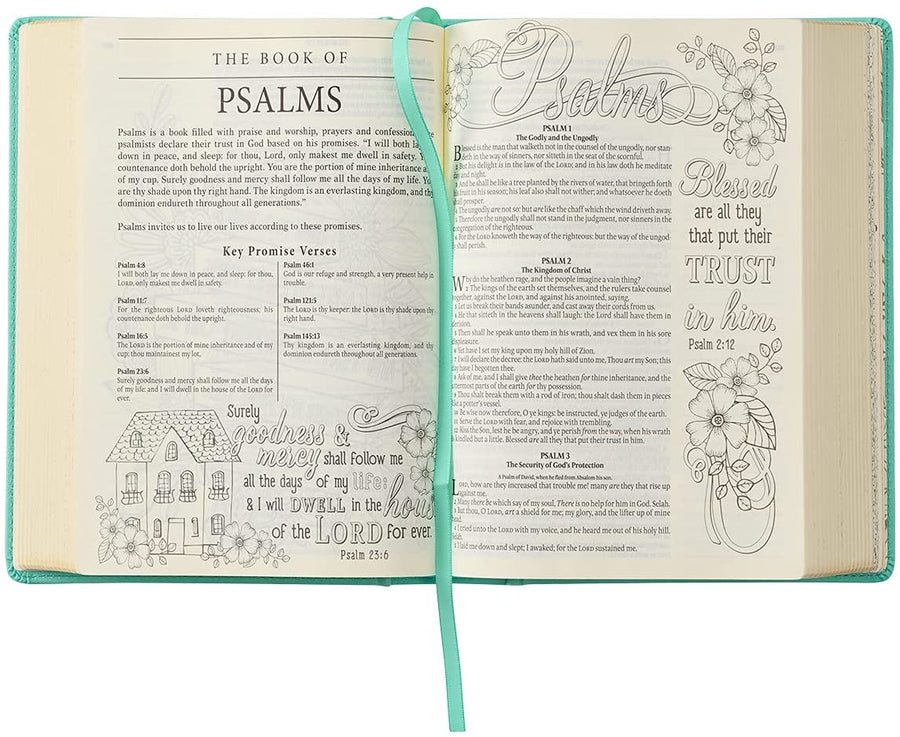 THE BOOK OF
PSALMS
Psalms is a book filled with praise and worship, prayers and
psalmists declare their trust in God based on his promises. “I will both
down in peace, and sleep: for thou, Lord, only makest me dwell in safety.
countenance doth behold the upright. You are the portion of mine inheritance
of my cup. Surely goodness and mercy shall follow me all the days of my life.
are thy shade upon thy right hand. The kingdom is an everlasting kingdom, and
dominion endureth throughout all generations.”
Psalms invites us to live our lives according to these promises.
Key Promise Verses
Psalm 4:8
I will both lay me down in peace, and sleep: for thou,
LORD, only makest me dwell in safety.
Psalm 11:7
For the righteous LORD loveth righteousness; his
countenance doth behold the upright.
Psalm 16:5
The LORD is the portion of mine inheritance and of my
cup: thou maintainest my lot.
Psalm 23:6
Surely goodness and mercy shall follow me all the days
of my life: and I will dwell in the house of the LORD for
ever.
Psalm 46:1
God is our refuge and strength, a very present help in
trouble.
Psalm 121:5
The LORD is thy keeper: the LORD is thy shade upon thy
right hand.
Psalm 145:13
Thy kingdom is an everlasting kingdom, and thy
dominion endureth throughout all generations.
Surely
goodness &
mercy shall follow me
all the days of my life:
& I will DWELL in the
of the LORD for ever.
Psalm 23:6
Psalms
PSALM 1
The Godly and the Ungodly
Blessed is the man that walketh not in the counsel of the ungodly, nor stan-
deth in the way of sinners, nor sitteth in the seat of the scornful.
But his delight is in the law of the LORD; and in his law doth he meditate
day and night.
And he shall be like a tree planted by the rivers of water, that bringeth forth
his fruit in his season; his leaf also shall not wither; and whatsoever he doeth
shall prosper.
The ungodly are not so: but are like the chaff which the wind driveth away.
Therefore the ungodly shall not stand in the judgment, nor sinners in the
congregation of the righteous.
For the LORD knoweth the way of the righteous: but the way of the ungod-
ly shall perish.
PSALM 2
The Kingdom of Christ
Why do the heathen rage, and the people imagine a vain thing?
2 The kings of the earth set themselves, and the rulers take counsel
together, against the LORD, and against his anointed, saying,
Let us break their bands asunder, and cast away their cords from us.
He that sitteth in the heavens shall laugh: the Lord shall have them in
derision.
Then shall he speak unto them in his wrath, and vex them in his sore
displeasure.
Yet have I set my king upon my holy hill of Zion.
I will declare the decree: the LORD hath said unto me, Thou art my Son; this
day have I begotten thee.
Ask of me, and I shall give thee the heathen for thine inheritance, and the
uttermost parts of the earth for thy possession.
Thou shalt break them with a rod of iron; thou shalt dash them in pieces
like a potter's vessel.
Be wise now therefore, O ye kings: be instructed, ye judges of the earth.
Serve the LORD with fear, and rejoice with trembling.
Kiss the Son, lest he be angry, and ye perish from the way, when his wrath
is kindled but a little. Blessed are all they that put their trust in him.
PSALM 3
The Security of God's Protection
A Psalm of David, when he fled from Absalom his son.
LORD, how are they increased that trouble me! many are they that rise up
against me.
Many there be which say of my soul, There is no help for him in God. Selah.
But thou, O LORD, art a shield for me; my glory, and the lifter up of mine
head.
I cried unto the LORD with my voice, and he heard me out of his holy hill.
Selah.
I laid me down and slept; I awaked; for the LORD sustained me.
Blessed
are all they
that put their
TRUST
in him.
Psalm 2:12